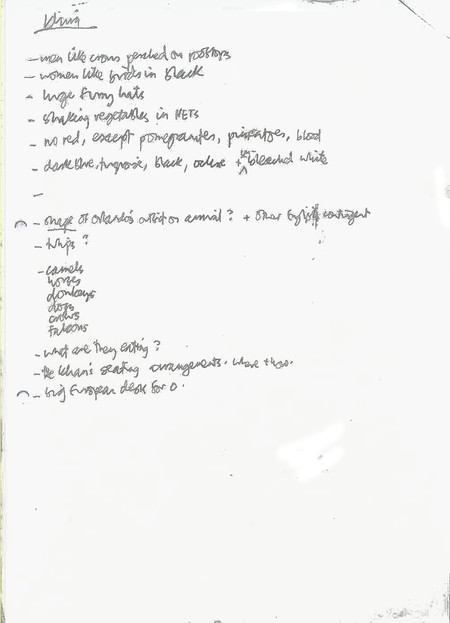 Khiva
- men like crows perched on rooftops
- women like birds in black
- huge furry hats
- shaking vegetables in NETS
- no red, except pomegranates, blood
- dark blue, turquoise, black, ochre + bleached white
-
- of Orlando's on arrival? + other English contingent
- whips?
- camels
horses
donkeys
dogs
crows
falcons
- what are they eating?
- the Khan's seating arrangements. where
- big European desk for O.